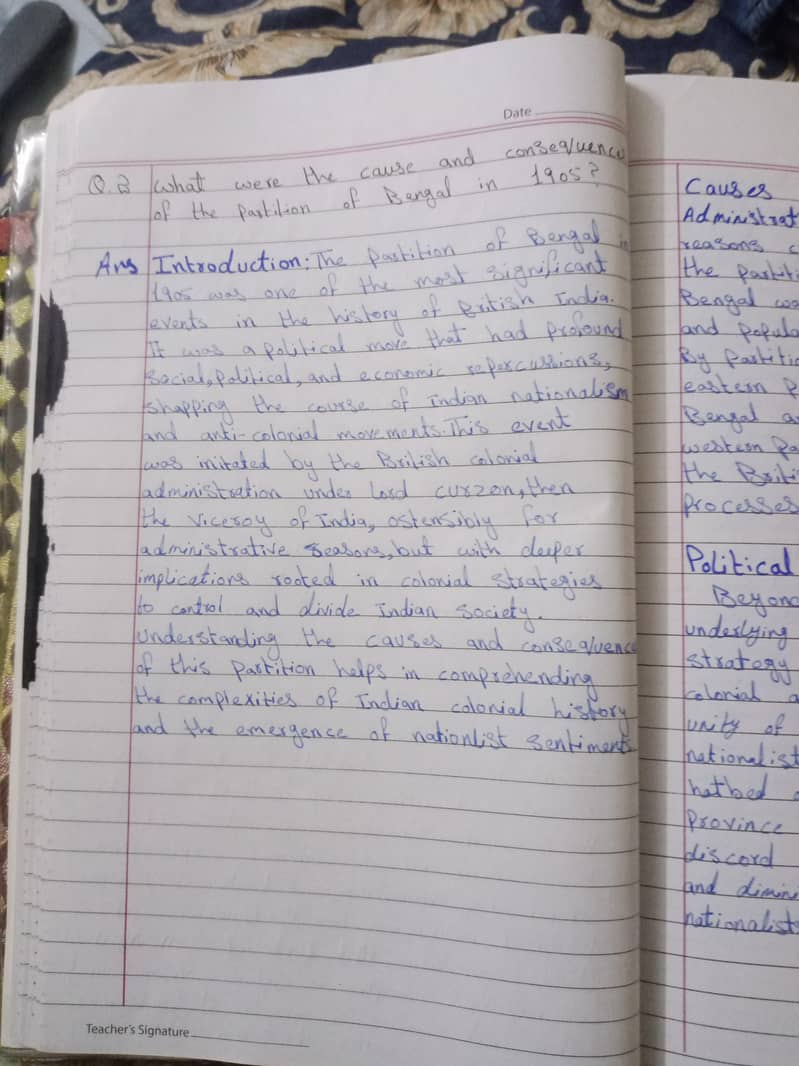 Date
Q.2 What were the cause and consequence
of the Partition of Bengal in 1905?
Ans Introduction: The Partition of Bengal in
1905 was one of the most significant
events in the history of British India.
It was a political move that had profound
social, political, and economic repercussions,
shapping the course of Indian nationalism
and anti-colonial movements. This event
was initated by the British colonial
administration under lord curzon, then
the Viceroy of India, ostensibly for
administrative reasons, but with deeper
implications rooted in colonial strategies
to control and divide Indian society.
Understanding the causes and consequence
of this Partition helps in comprehending
the complexities of Indian colonial history
and the emergence of nationlist sentiments
Teacher's Signature
Causes
Administrat
reasons
the partiti
Bengal wa
and popula
By Partitio
eastern P
Bengal a
western Pa
the Briti
Processes
Political
Beyond
underlying
strategy
colonial a
unity of
nationalist
hotbed
Province
discord
and dimini
nationalist